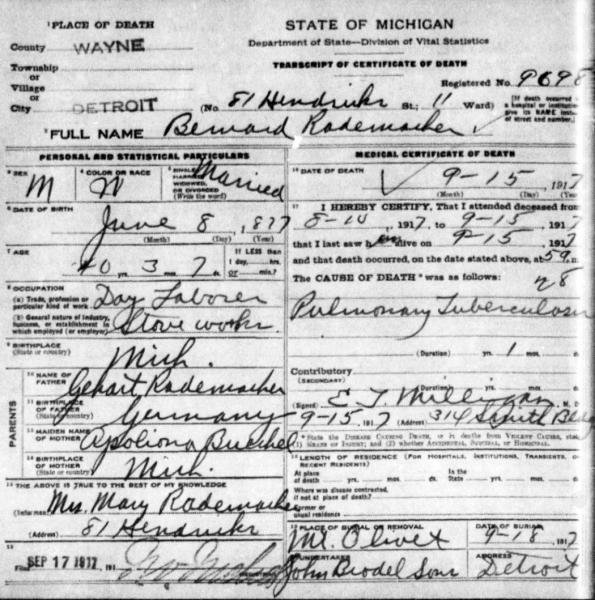 ¹PLACE OF DEATH
County WAYNE
Township
or
Village
or
City DETROIT
STATE OF MICHIGAN
Department of State—Division of Vital Statistics
TRANSCRIPT OF CERTIFICATE OF DEATH
Registered No. 9698
(No 81 Hendricks St.; 11 Ward)
[If death occurred
a hospital or institution
give its NAME
of street and number.]
²FULL NAME Bernard Rademacher
PERSONAL AND STATISTICAL PARTICULARS
³ SEX M
⁴ COLOR OR RACE W
⁵ SINGLE
MARRIED
WIDOWED,
OR DIVORCED
(Write the word)
Married
⁶ DATE OF BIRTH
June 8, 1877
(Month) (Day) (Year)
⁷ AGE
40 yrs. 3 mos. 7 ds.
If LESS than
1 day, hrs.
or min.
⁸ OCCUPATION
(a) Trade, profession or
particular kind of work Day Laborer
(b) General nature of industry,
business, or establishment in
which employed (or employer) Stove works
⁹ BIRTHPLACE
(State or country)
Mich.
PARENTS
¹⁰ NAME OF
FATHER Gehart Rademacher
¹¹ BIRTHPLACE
OF FATHER
(State or country) Germany
¹² MAIDEN NAME
OF MOTHER Apoliona Buechel
¹³ BIRTHPLACE
OF MOTHER
(State or country) Mich.
¹⁴ THE ABOVE IS TRUE TO THE BEST OF MY KNOWLEDGE
(Informant) Mrs. Mary Rademacher
81 Hendricks
¹⁵
Filed SEP 17 1917, 191
MEDICAL CERTIFICATE OF DEATH
¹⁶ DATE OF DEATH
9-15 1917
(Month) (Day) (Year)
¹⁷ I HEREBY CERTIFY, That I attended deceased from
8-10, 1917, to 9-15, 1917
that I last saw him alive on 9-15, 1917
and that death occurred, on the date stated above, at
The CAUSE OF DEATH * was as follows:
28
Pulmonary Tuberculosis
(Duration) yrs. 1 mos.
Contributory
(SECONDARY)
(Duration) yrs. mos.
(Signed) E T Milligan, M. D.
9-15, 1917 (Address) 314 Smith Bldg
* State the DISEASE CAUSING DEATH, or in deaths from VIOLENT CAUSES, state
(1) MEANS OF INJURY; and (2) whether ACCIDENTAL, SUICIDAL, or HOMICIDAL.
¹⁸ LENGTH OF RESIDENCE (FOR HOSPITALS, INSTITUTIONS, TRANSIENTS, OR
RECENT RESIDENTS)
At place
of death yrs. mos. ds.
In the
State yrs. mos.
Where was disease contracted,
if not at place of death?
Former or
usual residence
¹⁹ PLACE OF BURIAL OR REMOVAL
Mt. Olivet
DATE OF BURIAL
9-18, 1917
²⁰ UNDERTAKER
John Brodel Sons
ADDRESS
Detroit